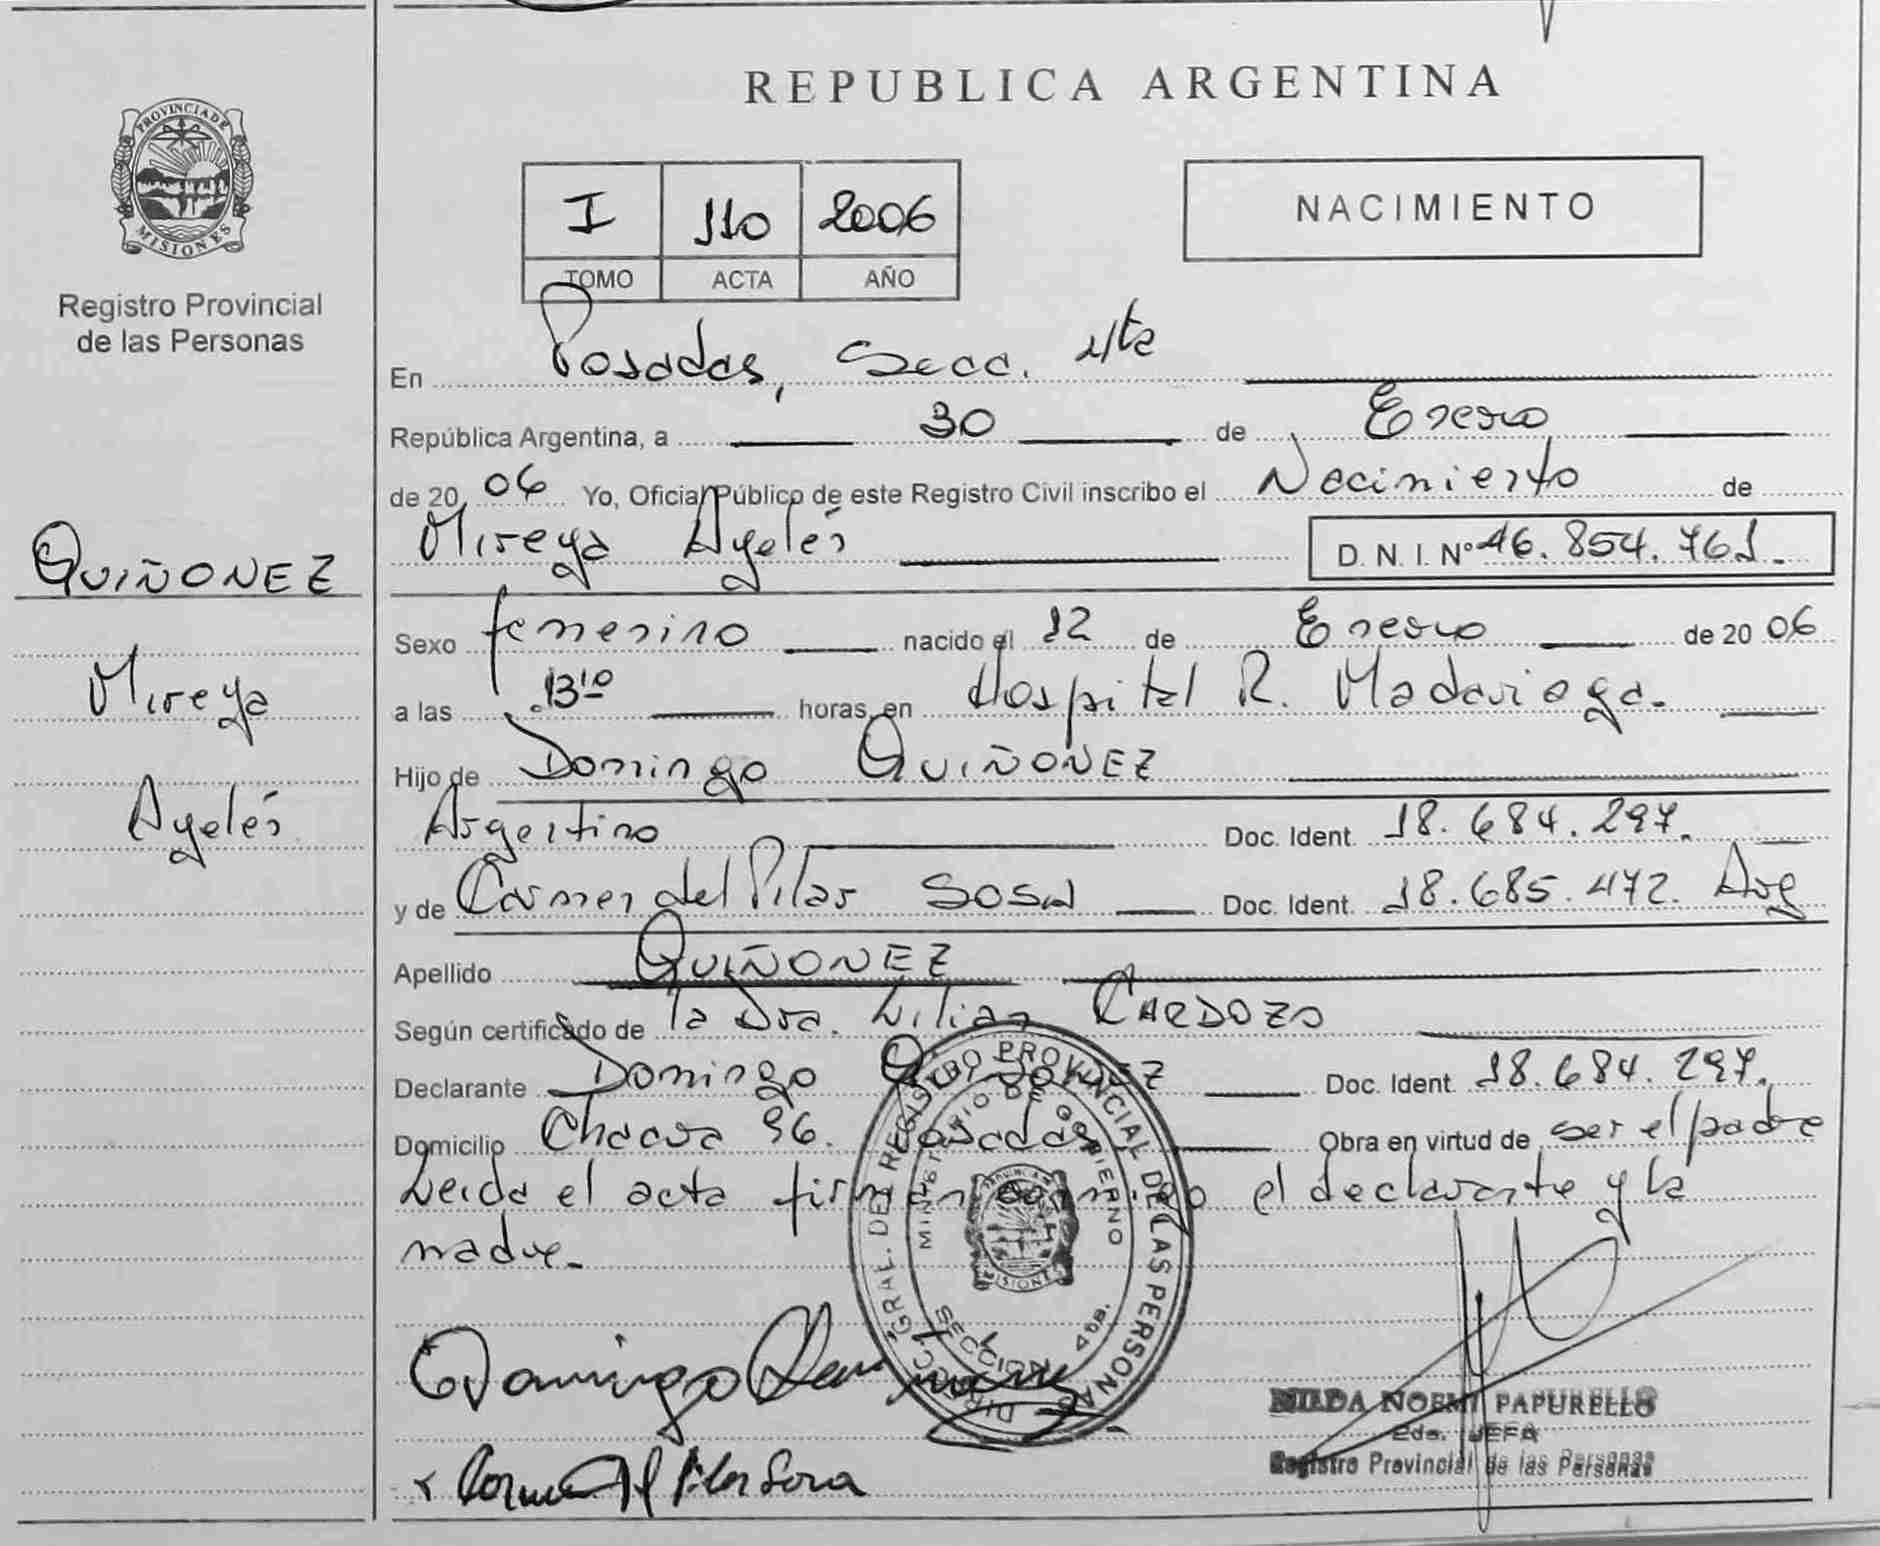 PROVINCIA DE
MISIONES
Registro Provincial
de las Personas
QUIÑONEZ
Mireya
Ayelén
REPUBLICA ARGENTINA
I 110 2006
TOMO ACTA AÑO
NACIMIENTO
En Posadas, Secc. 4ta
República Argentina, a 30 de Enero
de 2006 Yo, Oficial Público de este Registro Civil inscribo el Nacimiento de
Mireya Ayelén D. N. I. Nº 46.854.761.-
Sexo femenino nacido el 12 de Enero de 2006
a las 13:10 horas en Hospital R. Madariaga.
Hijo de Domingo QUIÑONEZ
Argentino Doc. Ident. 18.684.297.
y de Carmen del Pilar SOSA Doc. Ident. 18.685.472. Arg
Apellido QUIÑONEZ
Según certificado de la Dra. Lilian CARDOZO
Declarante Domingo QUIÑONEZ Doc. Ident. 18.684.297.
Domicilio Chacra 96. Posadas Obra en virtud de ser el padre
Leida el acta firman conmigo el declarante y la
madre.-
DIRECC. GRAL. DEL REGISTRO PROVINCIAL DE LAS PERSONAS
MINISTERIO DE GOBIERNO
SECCION 4ta.
MISIONES
Domingo
Carmen del Pilar Sosa
NOEMI PAPURELLO
2da. JEFA
Registro Provincial de las Personas